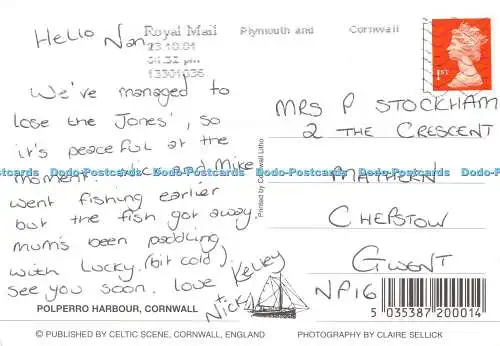 Royal Mail Plymouth and Cornwall
23.10.01
04.32 pm
13301036
1ST
Hello Nan,
We've managed to
lose the Jones', so
it's peaceful at the
moment. and Mike
went fishing earlier
but the fish got away.
Mum's been paddling
with Lucky. (bit cold)
see you soon. love Kelley
+ Nicky
MRS P STOCKHAM
2 THE CRESCENT
MATHERN
CHEPSTOW
GWENT
NP16
Dodo-Postcards Dodo-Postcards Dodo-Postcards Dodo-Postcards Dodo-Postcards Dodo-Postcards
Printed by Cornwall Litho
POLPERRO HARBOUR, CORNWALL
5 035387 200014
© PUBLISHED BY CELTIC SCENE, CORNWALL, ENGLAND PHOTOGRAPHY BY CLAIRE SELLICK